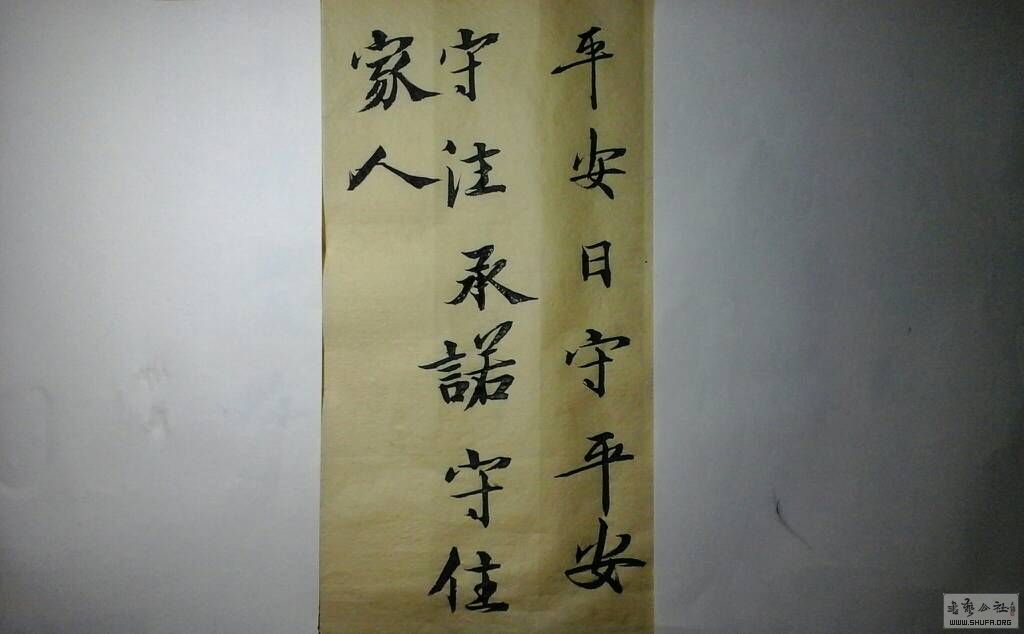 平安日守平安
守注承諾守住
家人
书艺公社
WWW.SHUFA.ORG